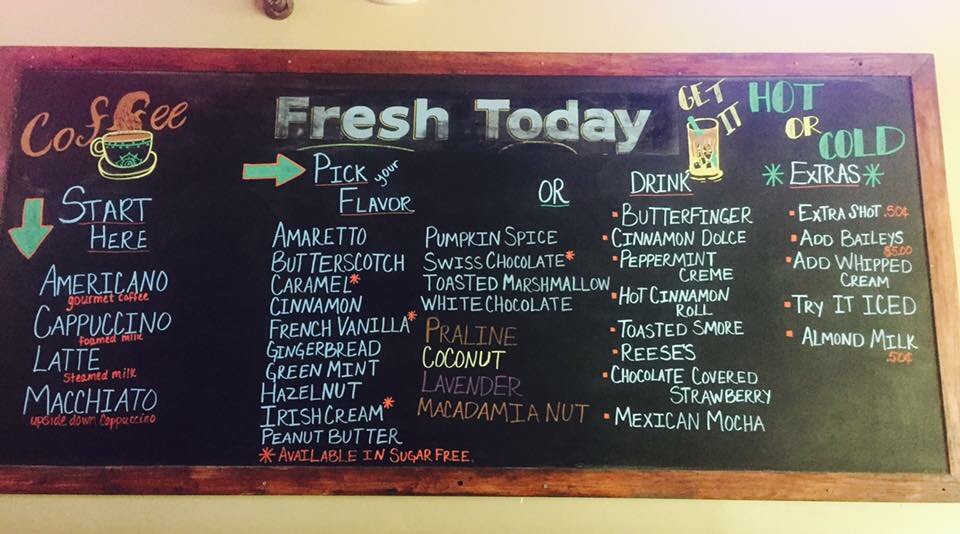 Coffee
Fresh Today
GET
IT
HOT
OR
COLD
START
HERE
AMERICANO
gourmet coffee
CAPPUCCINO
foamed milk
LATTE
Steamed milk
MACCHIATO
upside down Cappuccino
PICK your
FLAVOR
AMARETTO
BUTTERSCOTCH
CARAMEL*
CINNAMON
FRENCH VANILLA*
GINGERBREAD
GREEN MINT
HAZELNUT
IRISH CREAM*
PEANUT BUTTER
* AVAILABLE IN SUGAR FREE.
PUMPKIN SPICE
SWISS CHOCOLATE*
TOASTED MARSHMALLOW
WHITE CHOCOLATE
PRALINE
COCONUT
LAVENDER
MACADAMIA NUT
OR
DRINK
BUTTERFINGER
CINNAMON DOLCE
PEPPERMINT
CREME
HOT CINNAMON
ROLL
TOASTED SMORE
REESE'S
CHOCOLATE COVERED
STRAWBERRY
MEXICAN MOCHA
* EXTRAS *
EXTRA SHOT .50¢
ADD BAILEYS
$5.00
ADD WHIPPED
CREAM
TRY IT ICED
ALMOND MILK
.50¢